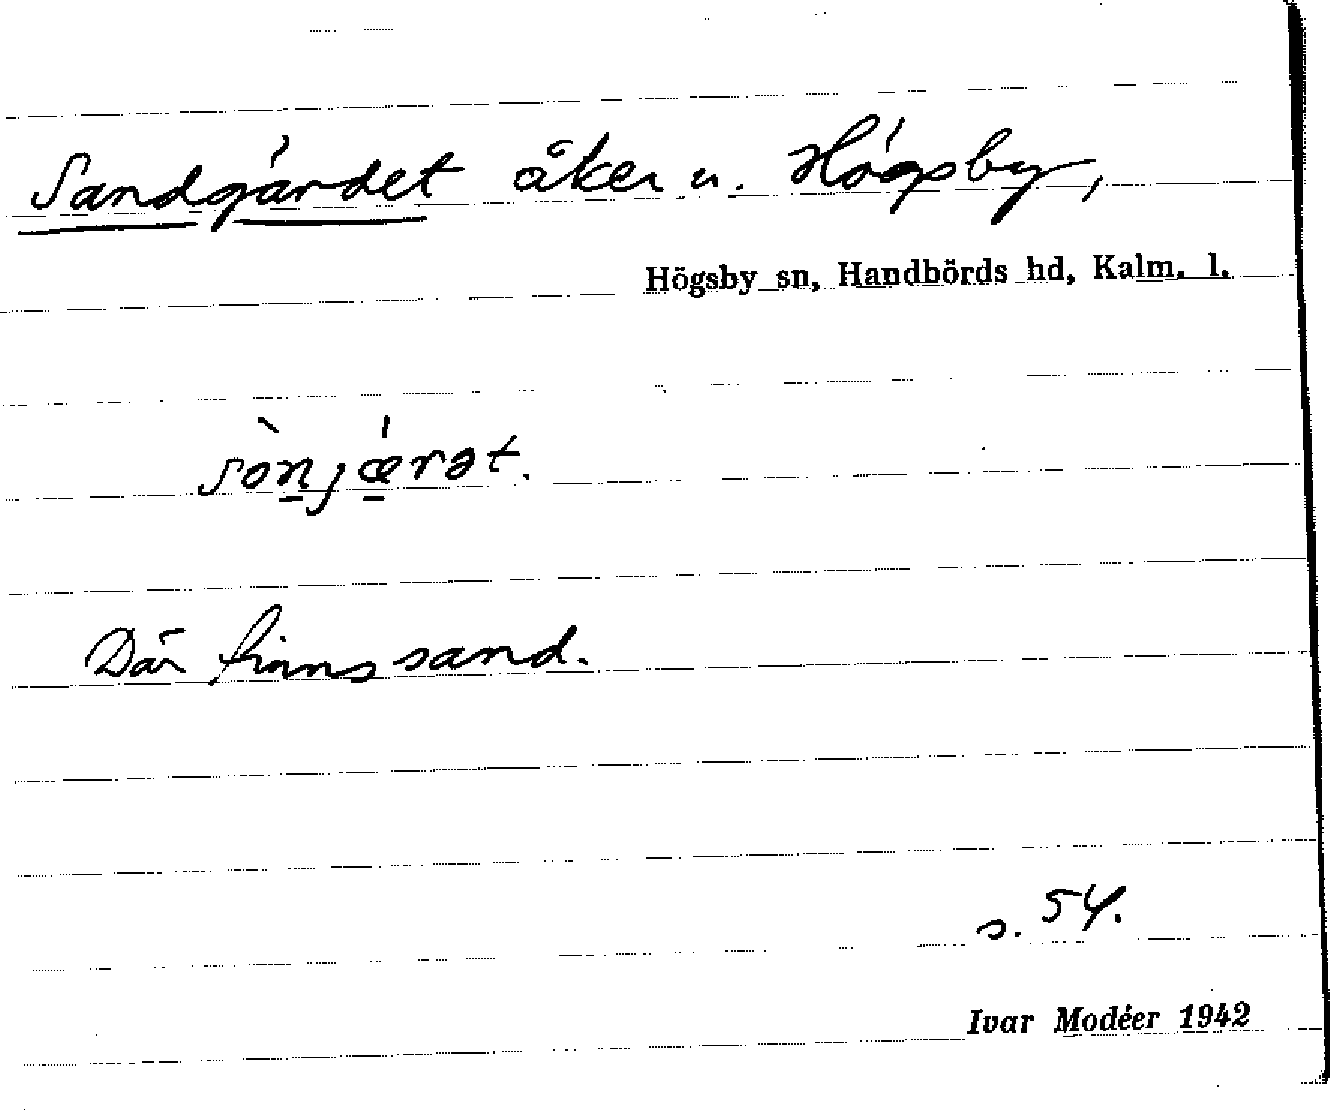 Sandgärdet åker u. Högsby,
Högsby sn, Handbörds hd, Kalm. l.
sànjǽrət.
Där finns sand.
s. 54.
Ivar Modéer 1942